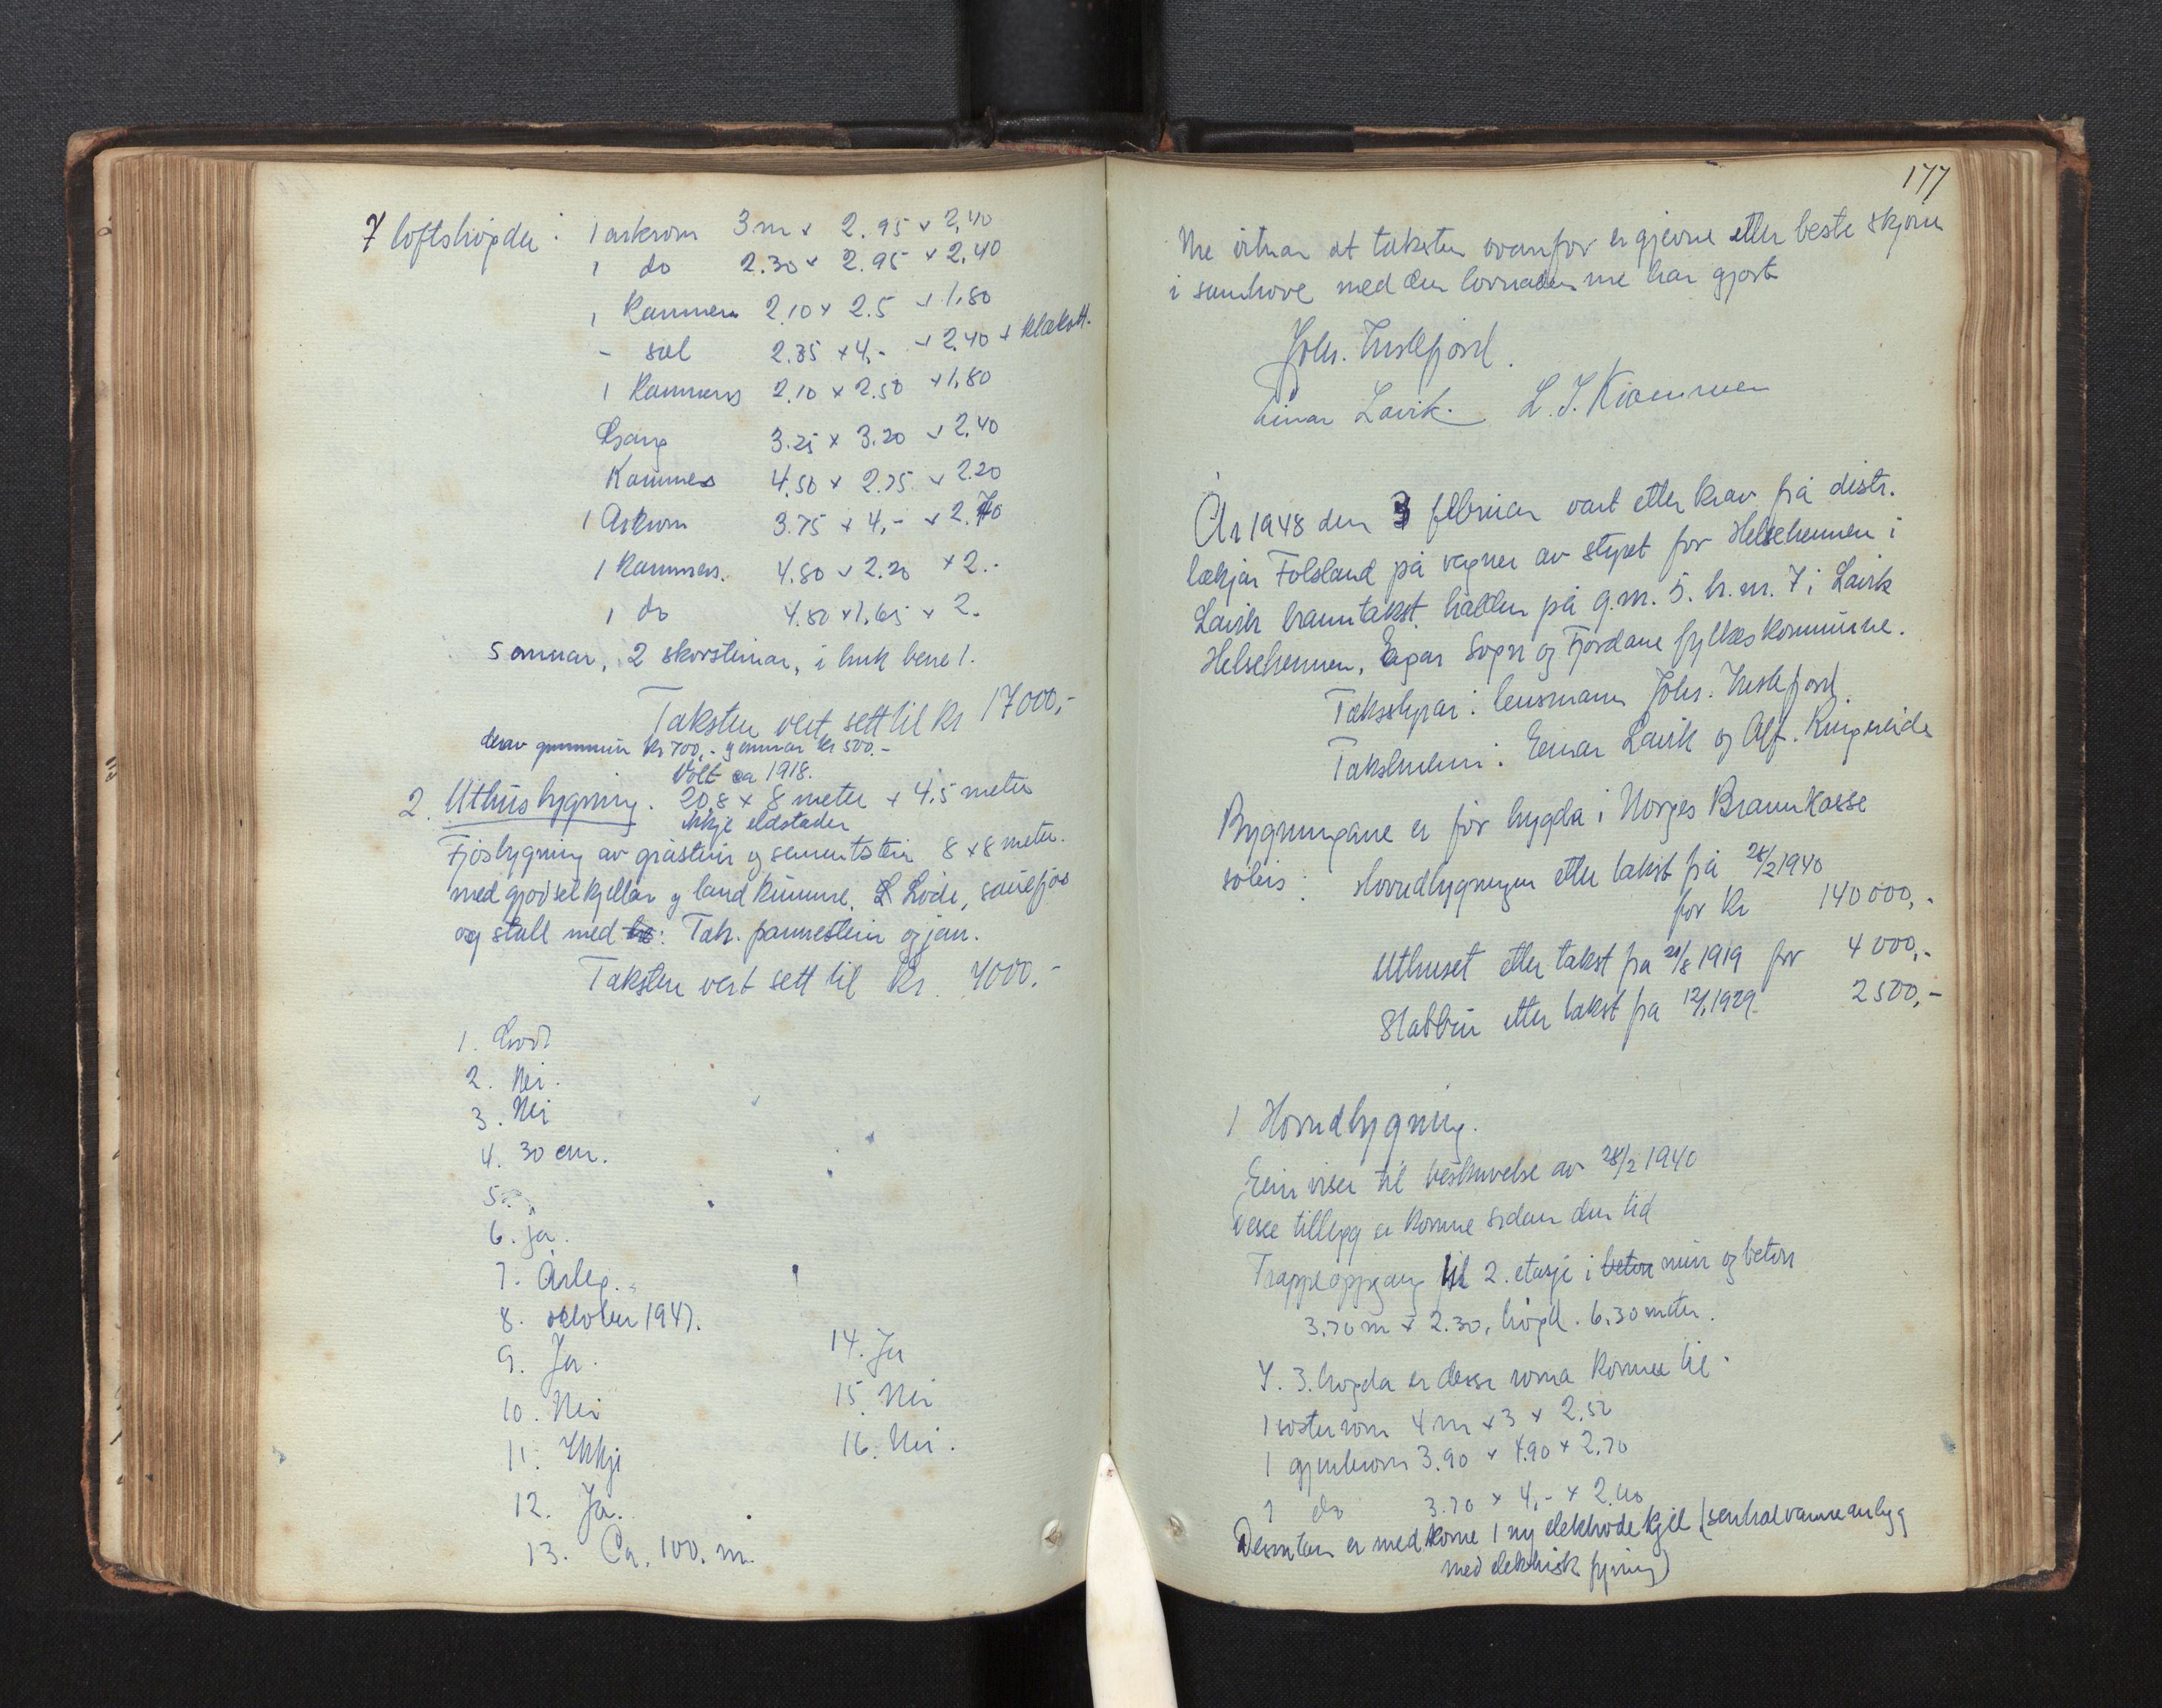 7 loftshøgder: 1 arkrom 3 m x 2.95 x 2,40
1 do 2.30 x 2.95 x 2.40
1 Kammers 2.10 x 2.5 x 1.80
- sal 2.35 x 4,- x 2.40 +
1 Kammers 2.10 x 2.50 x 1.80
Gang 3.25 x 3.20 x 2.40
Kammers 4.50 x 2.75 x 2.20
1 Arkrom 3.75 x 4,- x 2.40
1 Kammers. 4.80 x 2.20 x 2.-
1 do 4.80 x 1.65 x 2.
5 omnar, 2 skorsteinar, i bruk bere 1.
Taksten vert sett til kr 17000,-
derav grunnmur kr 700,- og omnar kr 500.-
Vølt ca 1918.
2. Uthusbygning. 20,8 x 8 meter x 4,5 meter
ikkje eldstader
Fjøsbygning av gråstein og sementstein 8 x 8 meter.
med gjødselkjellar og landkumme. Løde, sauefjøs
og stall med Tak. pannestein og jarn.
Taksten vert sett til kr. 4000.-
1. God
2. Nei.
3. Nei
4. 30 cm.
5.
6. ja.
7. Årleg.
8. oktober 1947.
9. Ja.
10. Nei
11. Ikkje
12. Ja.
13. Ca. 100. m.
14. Ja
15. Nei
16. Nei.
177
Me vitnar at taksten ovanfor er gjevne etter beste skjøn
i samhøve med den lovnaden me har gjort
Johs. Tuslefjord.
Einar Lavik. L. J. Kvammen
År 1948 den 3 februar vart etter krav frå distr.
lækjar Folsland på vegner av styret for Helseheimen i
Lavik branntakst halden på g.nr. 5. br. nr. 7 i Lavik
Helseheimen. Eigar Sogn og Fjordane fylkeskommune.
Takstyrar: lensmann Johs. Tuslefjord.
Takstmenn: Einar Lavik og Alf.
Bygningane er før trygda i Norges Brannkasse
soleis: Hovudbygningen etter takst frå 28/2 1940
for kr 140000,-
Uthuset etter takst fra 21/8 1919 for 4000,-
Stabbur etter takst fra 12/1 1929. 2500,-
1 Hovudbygning.
Ein viser til beskrivelse av 28/2 1940
Desse tillegg er komne sidan den tid
Trappeoppgang til 2. etasje i beton mur og beton
3.70 m x 2.30, høgd. 6.30 meter.
I 3. høgda er desse roma komne til.
1 søsterrom 4 m x 3 x 2.50
1 gjesterom 3.90 x 4.90 x 2.70
1 do 3.70 x 4,- x 2.40
Desutan er medkome 1 ny elektrodekjel (sentralvarmeanlegg
med elektrisk fyring)